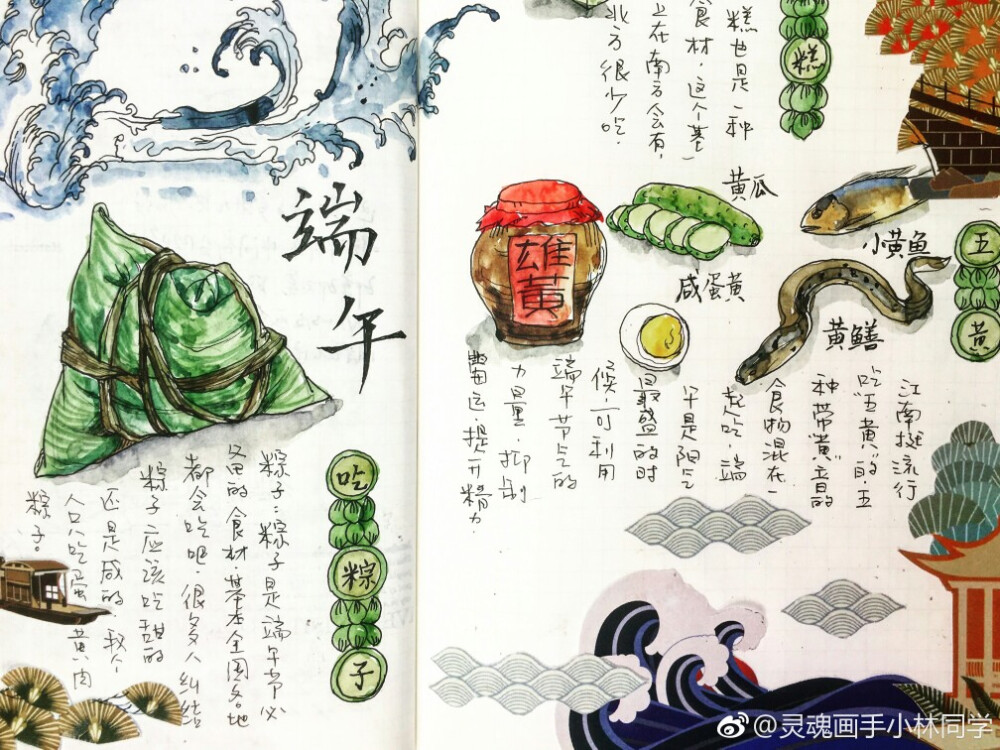 端午
吃粽子
粽子:粽子是端午节必
备的食材.基本全国各地
都会吃吧.很多人纠结
粽子应该吃甜的
还是咸的.我个
人只吃蛋黄肉
粽子。
糕
糕也是一种
食材,这个基
上在南方会有,
北方很少吃.
黄瓜
雄黄
咸蛋黄
小黄鱼
黄鳝
五黄
江南挺流行
吃"五黄"的.五
种带"黄"音的
食物混在一
起吃.端
午是阳气
最盛的时
候可利用
端午节气的
力量.抑制
霉运提升精力
@灵魂画手小林同学